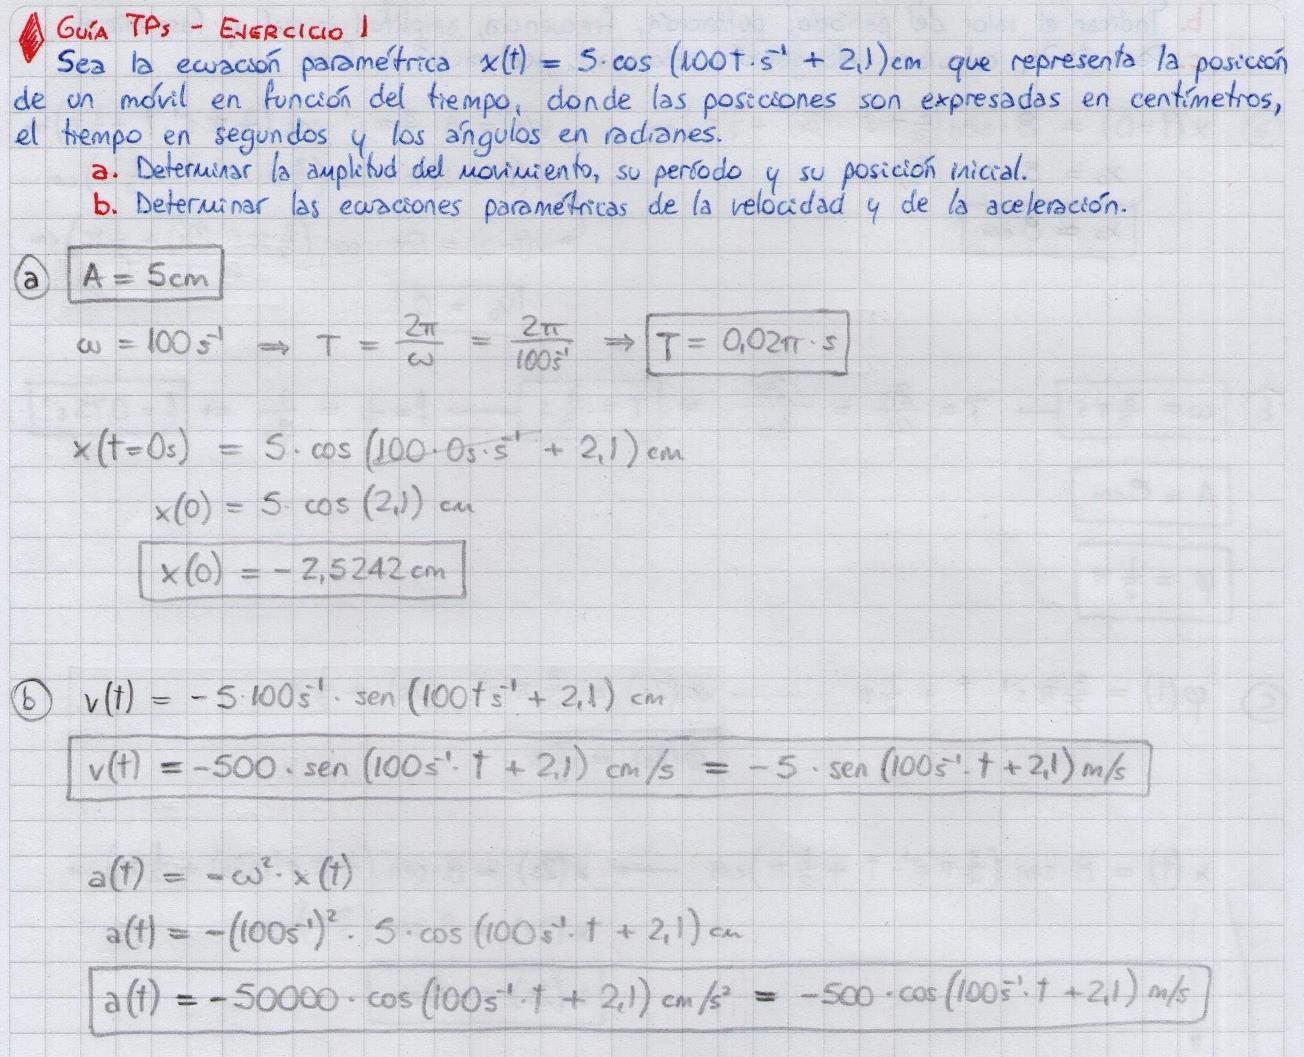 GUÍA TPs - EJERCICIO 1
Sea la ecuación paramétrica x(t) = 5·cos (100t·s⁻¹ + 2,1)cm que representa la posición
de un móvil en función del tiempo, donde las posiciones son expresadas en centímetros,
el tiempo en segundos y los ángulos en radianes.
a. Determinar la amplitud del movimiento, su período y su posición inicial.
b. Determinar las ecuaciones paramétricas de la velocidad y de la aceleración.
a A = 5cm
ω = 100 s⁻¹ ⇒ T = 2π/ω = 2π/100s⁻¹ ⇒ T = 0,02π·s
x(t=0s) = 5·cos (100·0s·s⁻¹ + 2,1) cm
x(0) = 5·cos (2,1) cm
x(0) = -2,5242 cm
b v(t) = -5·100s⁻¹·sen (100t s⁻¹ + 2,1) cm
v(t) = -500·sen (100s⁻¹·t + 2,1) cm/s = -5·sen (100s⁻¹·t + 2,1) m/s
a(t) = -ω²·x(t)
a(t) = -(100s⁻¹)²·5·cos (100s⁻¹·t + 2,1) cm
a(t) = -50000·cos (100s⁻¹·t + 2,1) cm/s² = -500·cos (100s⁻¹·t + 2,1) m/s